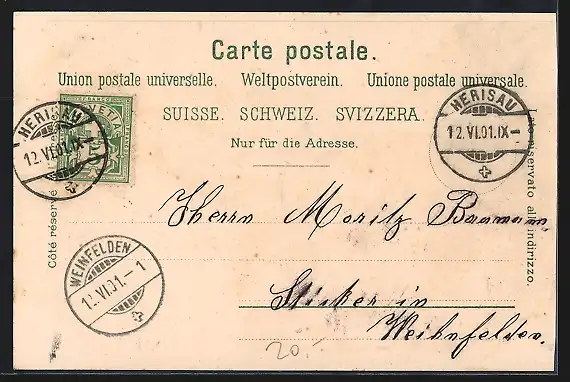 Carte postale.
Union postale universelle. Weltpostverein. Unione postale universale.
SUISSE. SCHWEIZ. SVIZZERA.
Nur für die Adresse.
Côté réservé
Lato riservato all'indirizzo.
FRANCO
HELVETIA
HERISAU
12.VI.01.IX-
HERISAU
12.VI.01.IX-
WEINFELDEN
12.VI.01.-1
Herrn Moritz Baumann
Sticker in
Weinfelden.
20.-